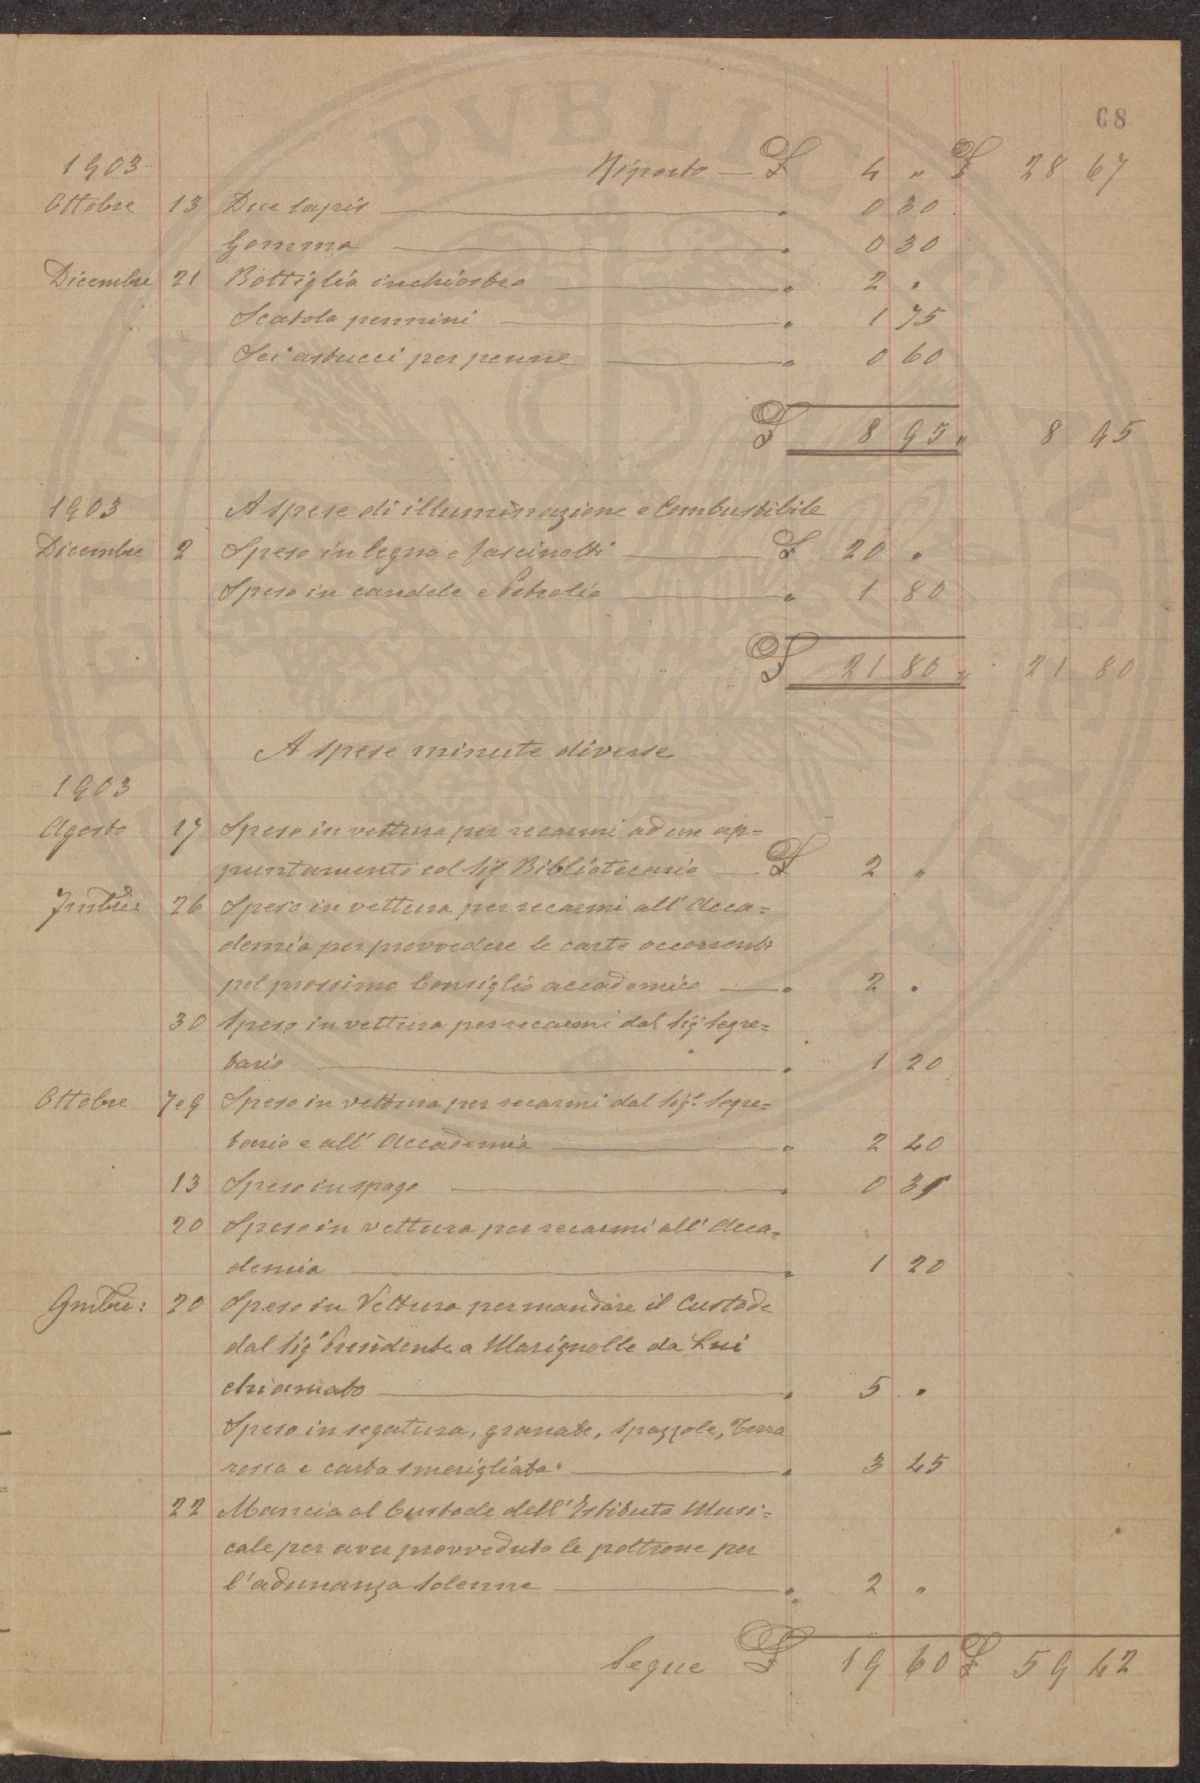 68
1903 Riporto £ 4 " £ 28 67
Ottobre 13 Due lapis " 0 30
Gomma " 0 30
Dicembre 21 Bottiglia inchiostro " 2 "
Scatola pennini " 1 75
Sei astucci per penne " 0 60
£ 8 95 " 8 95
1903 A spese di illuminazione e Combustibile
Dicembre 2 Speso in legna e fascinotti £ 20 "
Speso in candele e Petrolio " 1 80
£ 21 80 " 21 80
A spese minute diverse
1903
Agosto 17 Speso in vettura per recarmi ad un ap=
puntamento col Sig Bibliotecario £ 2 "
7mbre: 26 Speso in vettura per recarmi all'Acca=
demia per provvedere le carte occorrenti
pel prossimo Consiglio accademico " 2 "
30 Speso in vettura per recarmi dal Sig Segre=
tario " 1 20
Ottobre 7e9 Speso in vettura per recarmi dal Sig. Segre=
tario e all'Accademia " 2 40
13 Speso in spago " 0 35
20 Speso in vettura per recarmi all'Acca=
demia " 1 20
9mbre: 20 Speso in Vettura per mandare il Custode
dal Sig Presidente a Marignolle da Lui
chiamato " 5 "
Speso in segatura, granate, spazzole, Terra
rossa e carta smerigliata " 3 45
22 Mancia al Custode dell'Istituto Musi=
cale per aver provveduto le poltrone per
l'adunanza solenne " 2 "
Segue £ 19 60 £ 59 42